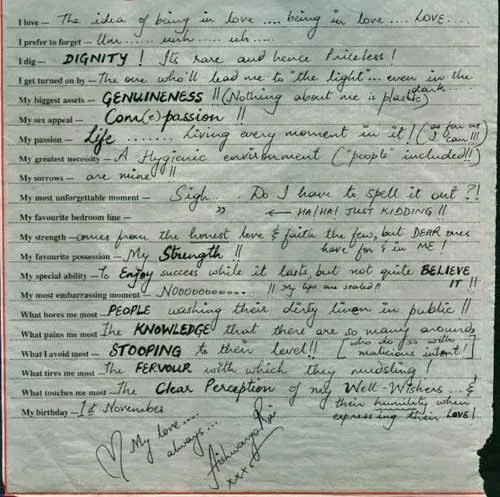 I love — The idea of being in love .... being in love .... LOVE....
I prefer to forget — Um ...... uuh ..... uh .....
I dig — DIGNITY ! Its rare and hence Priceless !
I get turned on by — The one who'll lead me to "the light"... even in the dark
My biggest assets — GENUINENESS !! (Nothing about me is plastic)
My sex appeal — Com(e)passion !!
My passion — Life ....... Living every moment in it ! (as far as I can !!!)
My greatest necessity — A Hygienic environment ("people" included!!)
My sorrows — are mine !!
My most unforgettable moment — Sigh ... Do I have to spell it out ?!
My favourite bedroom line — " ← HA! HA! JUST KIDDING !!
My strength — comes from the honest love & faith the few, but DEAR ones have for & in ME !
My favourite possession — My Strength !!
My special ability — To Enjoy success while it lasts, but not quite BELIEVE IT !!
My most embarrassing moment — NOOOOOOOOO... !! My lips are sealed !!
What bores me most — PEOPLE washing their dirty linen in public !!
What pains me most — The KNOWLEDGE that there are so many around
What I avoid most — STOOPING to their level !! [who do so with malicious intent!]
What tires me most — The FERVOUR with which they mudsling !
What touches me most — The Clear Perception of my Well-Wishers ... & their humility when expressing their LOVE !
My birthday — 1st November
My love .....
always...
Aishwarya Rai
xxx